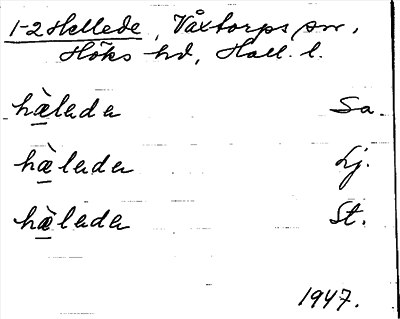 1-2 Hellede, Våxtorps sn,
Höks hd, Hall. l.
hæ̀leda Sa.
hæ̀leda Lj.
hæ̀leda St.
1947.